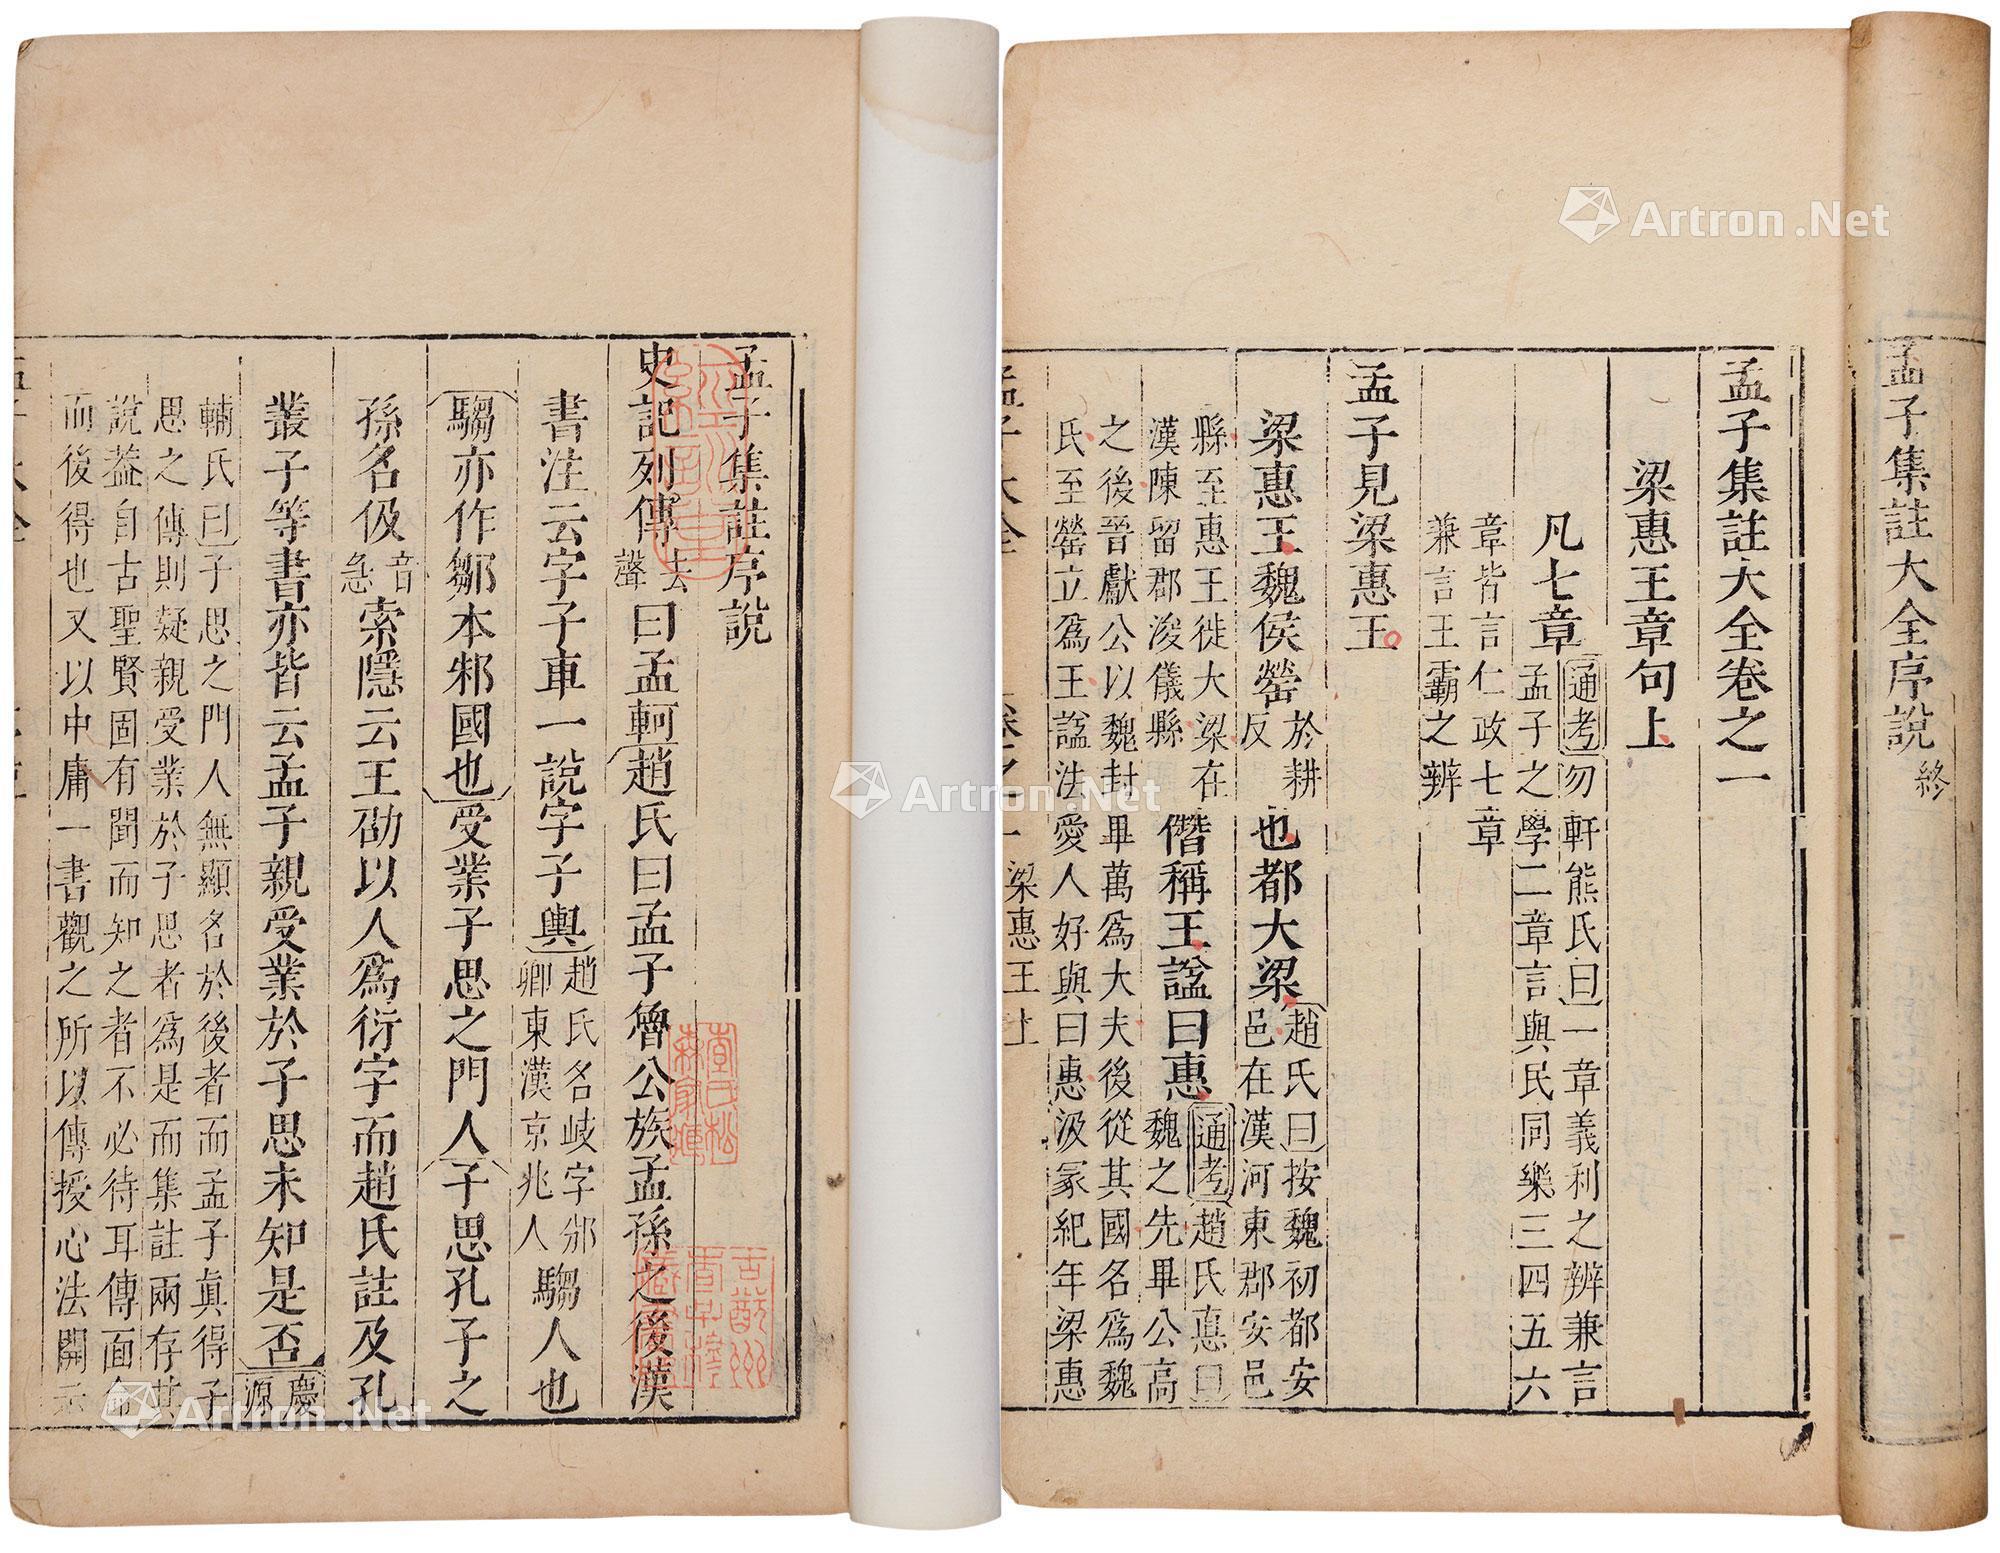 孟子集註大全序說 終
孟子集註大全卷之一
梁惠王章句上
凡七章 通考勿軒熊氏曰一章義利之辨兼言
孟子之學二章言與民同樂三四五六
章皆言仁政七章
兼言王霸之辨
孟子見梁惠王
梁惠王魏侯罃 於耕
反 也都大梁 趙氏曰按魏初都安
邑在漢河東郡安邑
縣至惠王徙大梁在
漢陳留郡浚儀縣 僭稱王諡曰惠 通考趙氏悳曰
魏之先畢公高
之後晉獻公以魏封畢萬爲大夫後從其國名爲魏
氏至罃立爲王諡法愛人好與曰惠汲冢紀年梁惠
梁惠王上
孟子集註序說
史記列傳 去
聲 曰孟軻 趙氏曰孟子魯公族孟孫之後漢
書注云字子車一說字子輿 趙氏名岐字邠
卿東漢京兆人 騶人也
騶亦作鄒本邾國也 受業子思之門人 子思孔子之
孫名伋 音
急 索隱云王劭以人爲衍字而趙氏註及孔
叢子等書亦皆云孟子親受業於子思未知是否 慶
源
輔氏曰子思之門人無顯名於後者而孟子眞得子
思之傳則疑親受業於子思者爲是而集註兩存其
說葢自古聖賢固有聞而知之者不必待耳傳面命
而後得也又以中庸一書觀之所以傳授心法開示
Artron.Net
Artron.Net
Artron.Net